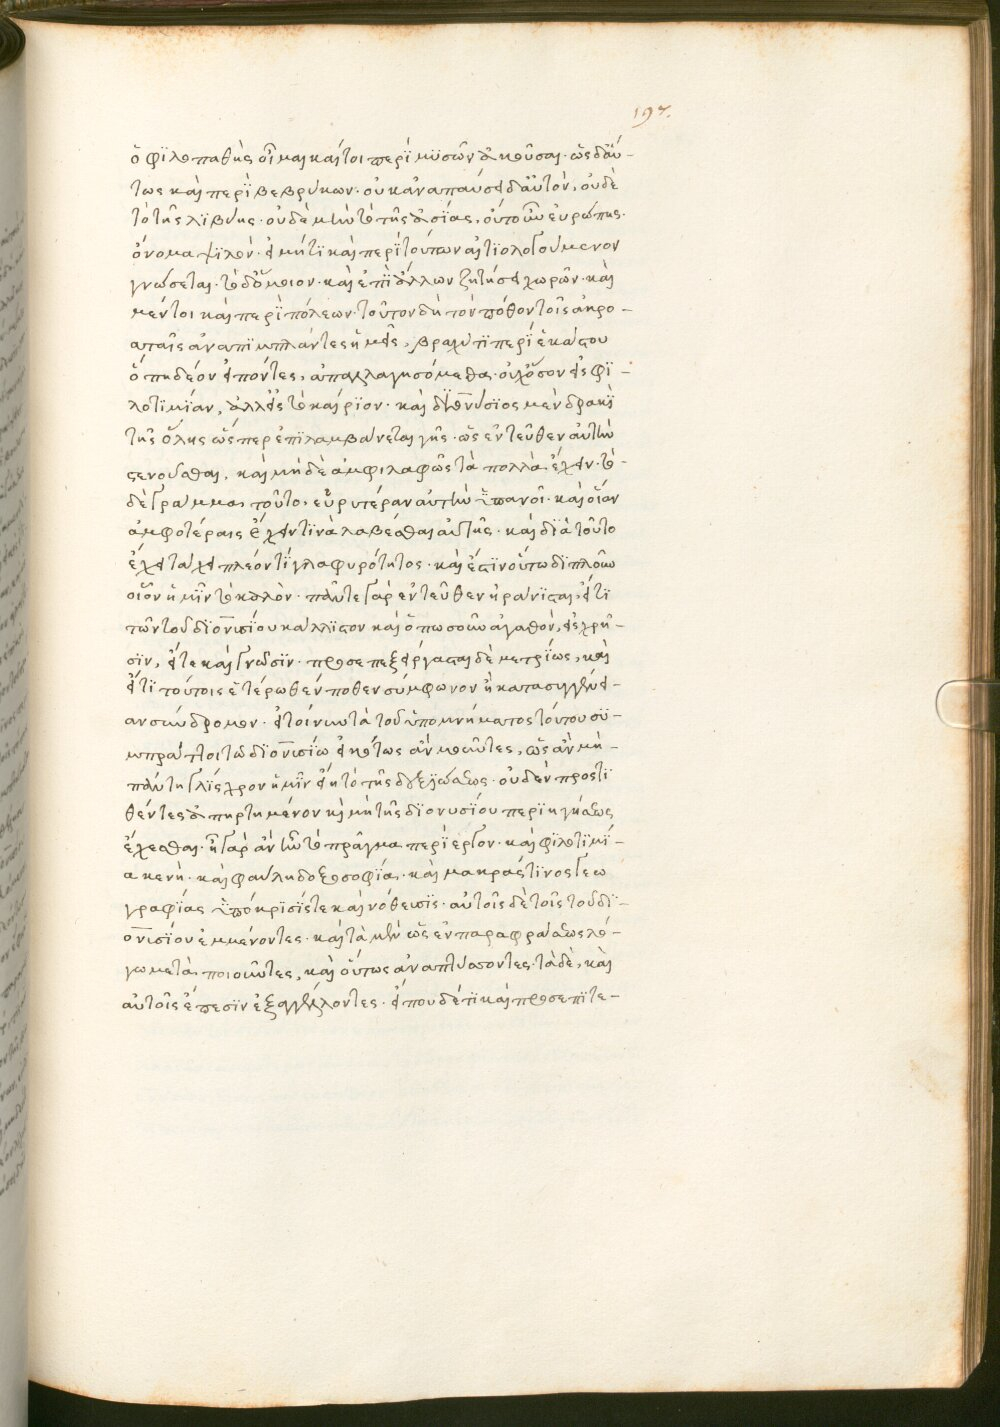 197.
ὁ φιλομαθὴς οἶμαι καί τοι περὶ μυσῶν ἀκοῦσαι· ὡσαύ-
τως καὶ περὶ βεβρύκων· οὐκ ἀναπαύσει δ' αὐτὸν, οὐδὲ
τὸ τῆς λιβύης· οὐδὲ μὴν τὸ τῆς ἀσίας, οὔτ' οὖν εὐρώπης
ὄνομα ψιλὸν· εἰ μή τι καὶ περὶ τούτων αἰτιολογούμενον
γνώσεται· τὸ δ' ὅμοιον· καὶ ἐπὶ ἄλλων ζητήσει χωρῶν· καὶ
μέντοι καὶ περὶ πόλεων· τοῦτον δὴ τὸν πόθον τοῖς ἀκρο-
αταῖς ἀναπιμπλάντες ἡμεῖς, βραχύ τι περὶ ἑκάστου
ὅπη δέον εἰπόντες, ἀπαλλαγησόμεθα· οὐχ ὅσον εἰς φι-
λοτιμίαν, ἀλλ' εἰς τὸ καίριον· καὶ διονύσιος μὲν δρακὶ
τῆς ὅλης ὥσπερ ἐπιλαμβάνεται γῆς· ὡς ἐντεῦθεν αὐτὴν
στενοῦσθαι, καὶ μηδὲ ἀμφιλαφῶς τὰ πολλὰ ἔχειν· τὸ
δὲ γράμμα τοῦτο, εὐρυτέραν αὐτὴν ὑπανοῖ· καὶ οἷον
ἀμφοτέραις ἔχειν τινὰ λαβέσθαι αὐτῆς· καὶ διὰ τοῦτο
ἔχει τάχει πλέον τι γλαφυρότητος· καὶ ἔστιν οὕτω διπλοῦν
οἷον ἡμῖν τὸ καλὸν· πᾶν τε γὰρ ἐντεῦθεν ἠράνισται, εἴ τι
τῶν τοῦ διονυσίου κάλλιστον καὶ ὁπωσοῦν ἀγαθὸν, εἰς χρῆ-
σιν, εἴτε καὶ γνῶσιν· προσεπεξείργασται δὲ μετρίως, καὶ
εἴ τι τούτοις ἑτέρωθέν ποθεν σύμφωνον ἢ κατασυγγένει-
αν σύνδρομον· εἰ τοίνυν τὰ τοῦ ὑπομνήματος τούτου συ-
μπράττοι τῷ διονυσίῳ εἰκότως ἀνύοντες, ὡς ἂν μὴ
πάντη γλίσχρον ἡμῖν εἴη τὸ τῆς διεξιώσεως· οὐδὲν προστι
θέντες ἀπηρτημένον καὶ μὴ τῆς διονυσίου περιηγήσεως
ἔχεσθαι· ἦ γὰρ ἂν ἦν τὸ πρᾶγμα περίεργον· καὶ φιλοτιμί-
α κενὴ· καὶ φαύλη δοξοσοφία· καὶ μακρᾶς τινος γεω
γραφίας ὑπόκρισίς τε καὶ νόθευσις· αὐτοῖς δὲ τοῖς τοῦ δι-
ονυσίου ἐμμένοντες· καὶ τὰ μὲν ὡς ἐν παραφράσεως λό-
γῳ μεταποιοῦντες, καὶ οὕτως ἀναπτύσσοντες· τὰ δὲ, καὶ
αὐτοῖς ἔπεσιν ἐξαγγέλλοντες· εἴ που δέ τι καὶ προσεπιτε-